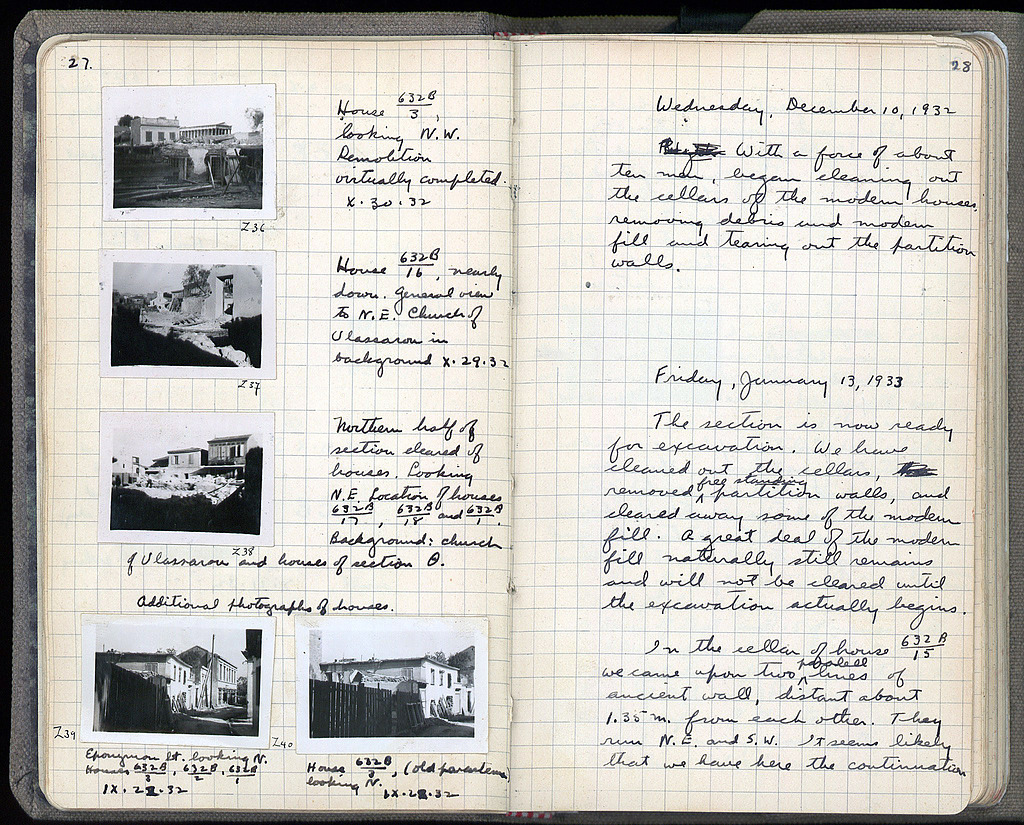 27.
House 632B/3,
looking N.W.
Demolition
virtually completed.
X·30·32
Z36
House 632B/16, nearly
down. General view
to N.E. Church of
Vlassarou in
background X·29·32
Z37
Northern half of
section cleared of
houses. Looking
N.E. Location of houses
632B/17, 632B/18 and 632B/1.
Background: church
Z38
of Vlassarou and houses of section Θ.
Additional photographs of houses.
Z39
Eponymon St. looking N.
Houses 632B/3, 632B/2, 632B/1
IX·28·32
Z40
House 632B/3, (old
looking N.
IX·28·32
28
Wednesday, December 10, 1932
With a force of about
ten men, began cleaning out
the cellars of the modern houses,
removing debris and modern
fill and tearing out the partition
walls.
Friday, January 13, 1933
The section is now ready
for excavation. We have
cleared out the cellars,
removed free standing partition walls, and
cleared away some of the modern
fill. A great deal of the modern
fill naturally still remains
and will not be cleared until
the excavation actually begins.
In the cellar of house 632B/15
we came upon two parallel lines of
ancient wall, distant about
1.35 m. from each other. They
run N.E. and S.W. It seems likely
that we have here the continuation